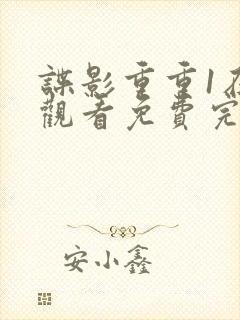 諜影重重1在
觀看免費完
安小鑫